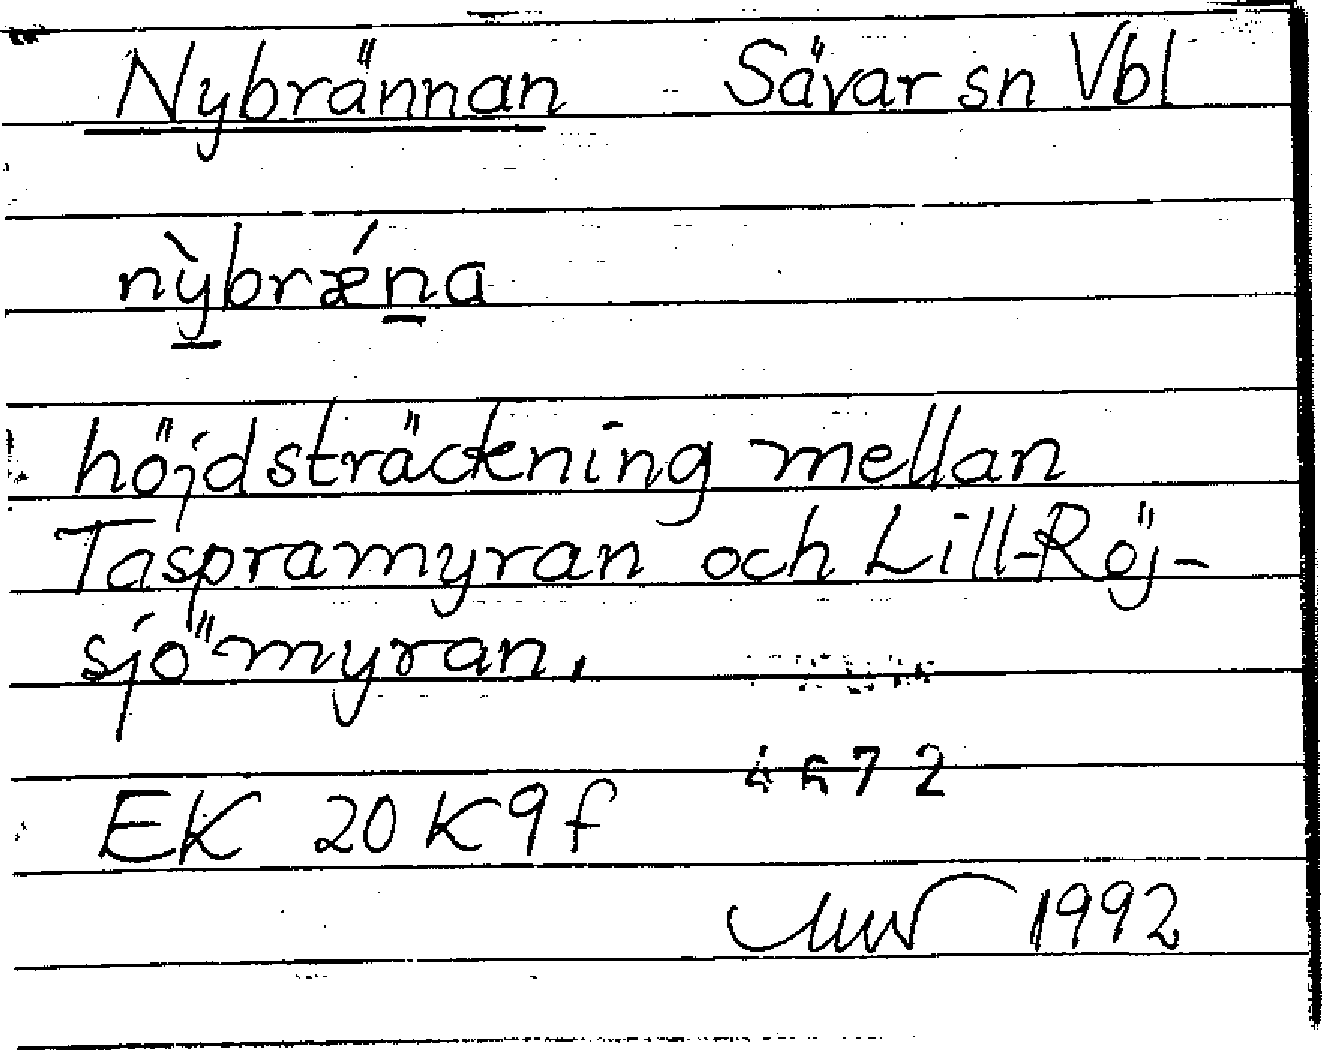 Nybrännan Sävar sn Vbl
nỳbrǽna
höjdsträckning mellan
Taspramyran och Lill-Röj-
sjömyran.
4672
EK 20K9f
1992